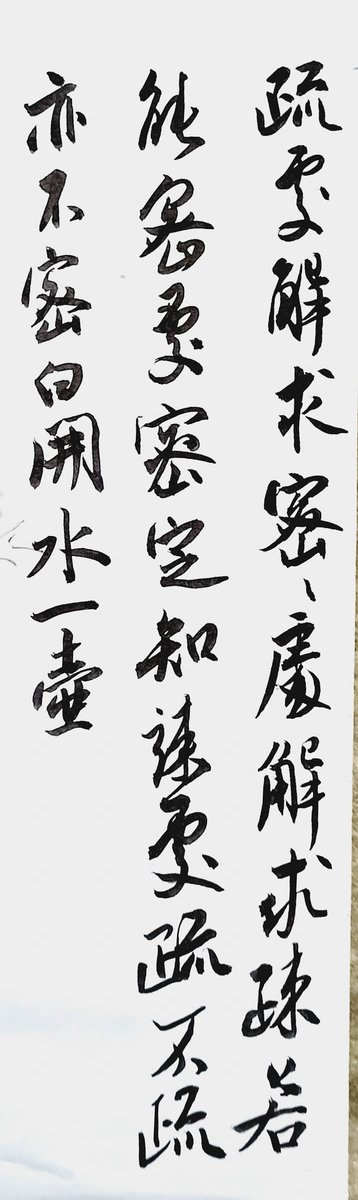 疏處解求密〻處解求疎若
能密處密定知疎處疏不疏
亦不密白開水一壺